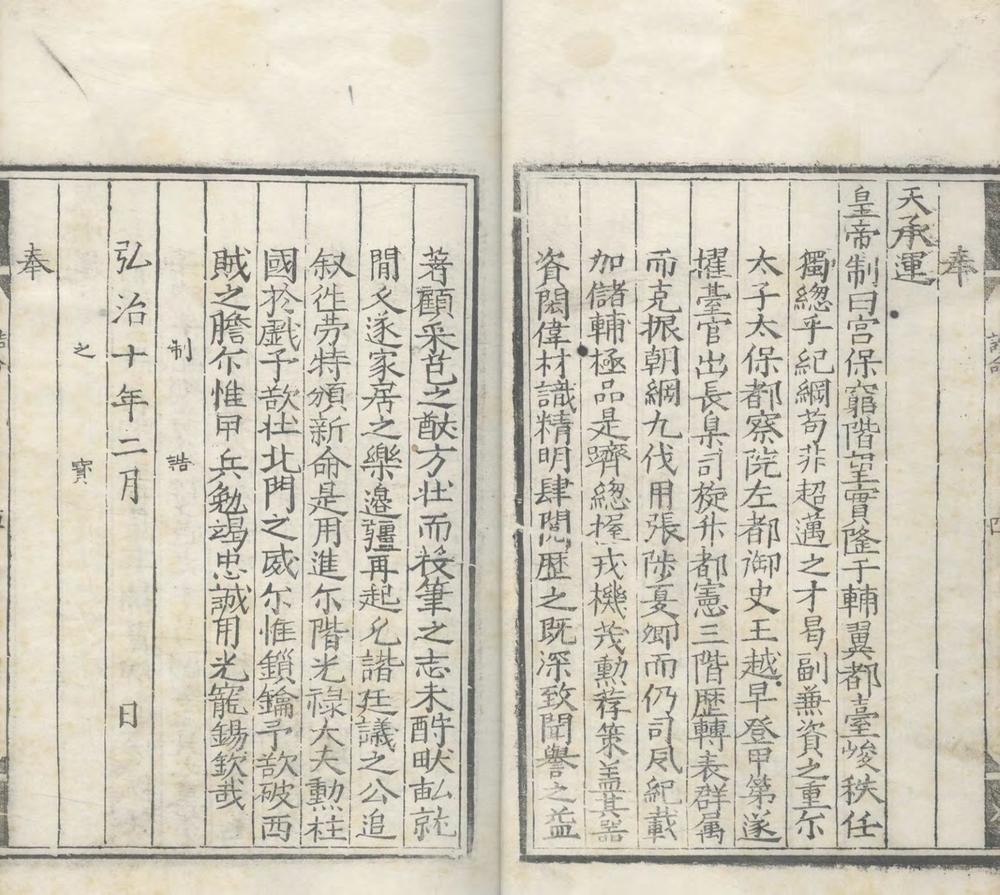 奉
天承運
皇帝制曰宮保窮階望實隆于輔翼都臺峻秩任
獨總乎紀綱苟非超邁之才曷副兼資之重尔
太子太保都察院左都御史王越早登甲第遂
擢臺官出長臬司旋升都憲三階歷轉表群属
而克振朝綱九伐用張陟夏卿而仍司風紀載
加儲輔極品是躋總握戎機茂勳荐策盖其器
資閎偉材識精明肆閱歷之既深致聞譽之益
著顧采芑之猷方壮而投筆之志未酧畎畝就
閒久遂家居之樂邉疆再起允諧廷議之公追
叙徃劳特頒新命是用進尔階光禄大夫勲柱
國扵戯予欲壮北門之威尔惟鎖鑰予欲破西
賊之膽尔惟甲兵勉竭忠誠用光寵錫欽哉
制誥
弘治十年二月 日
之寳
奉
四